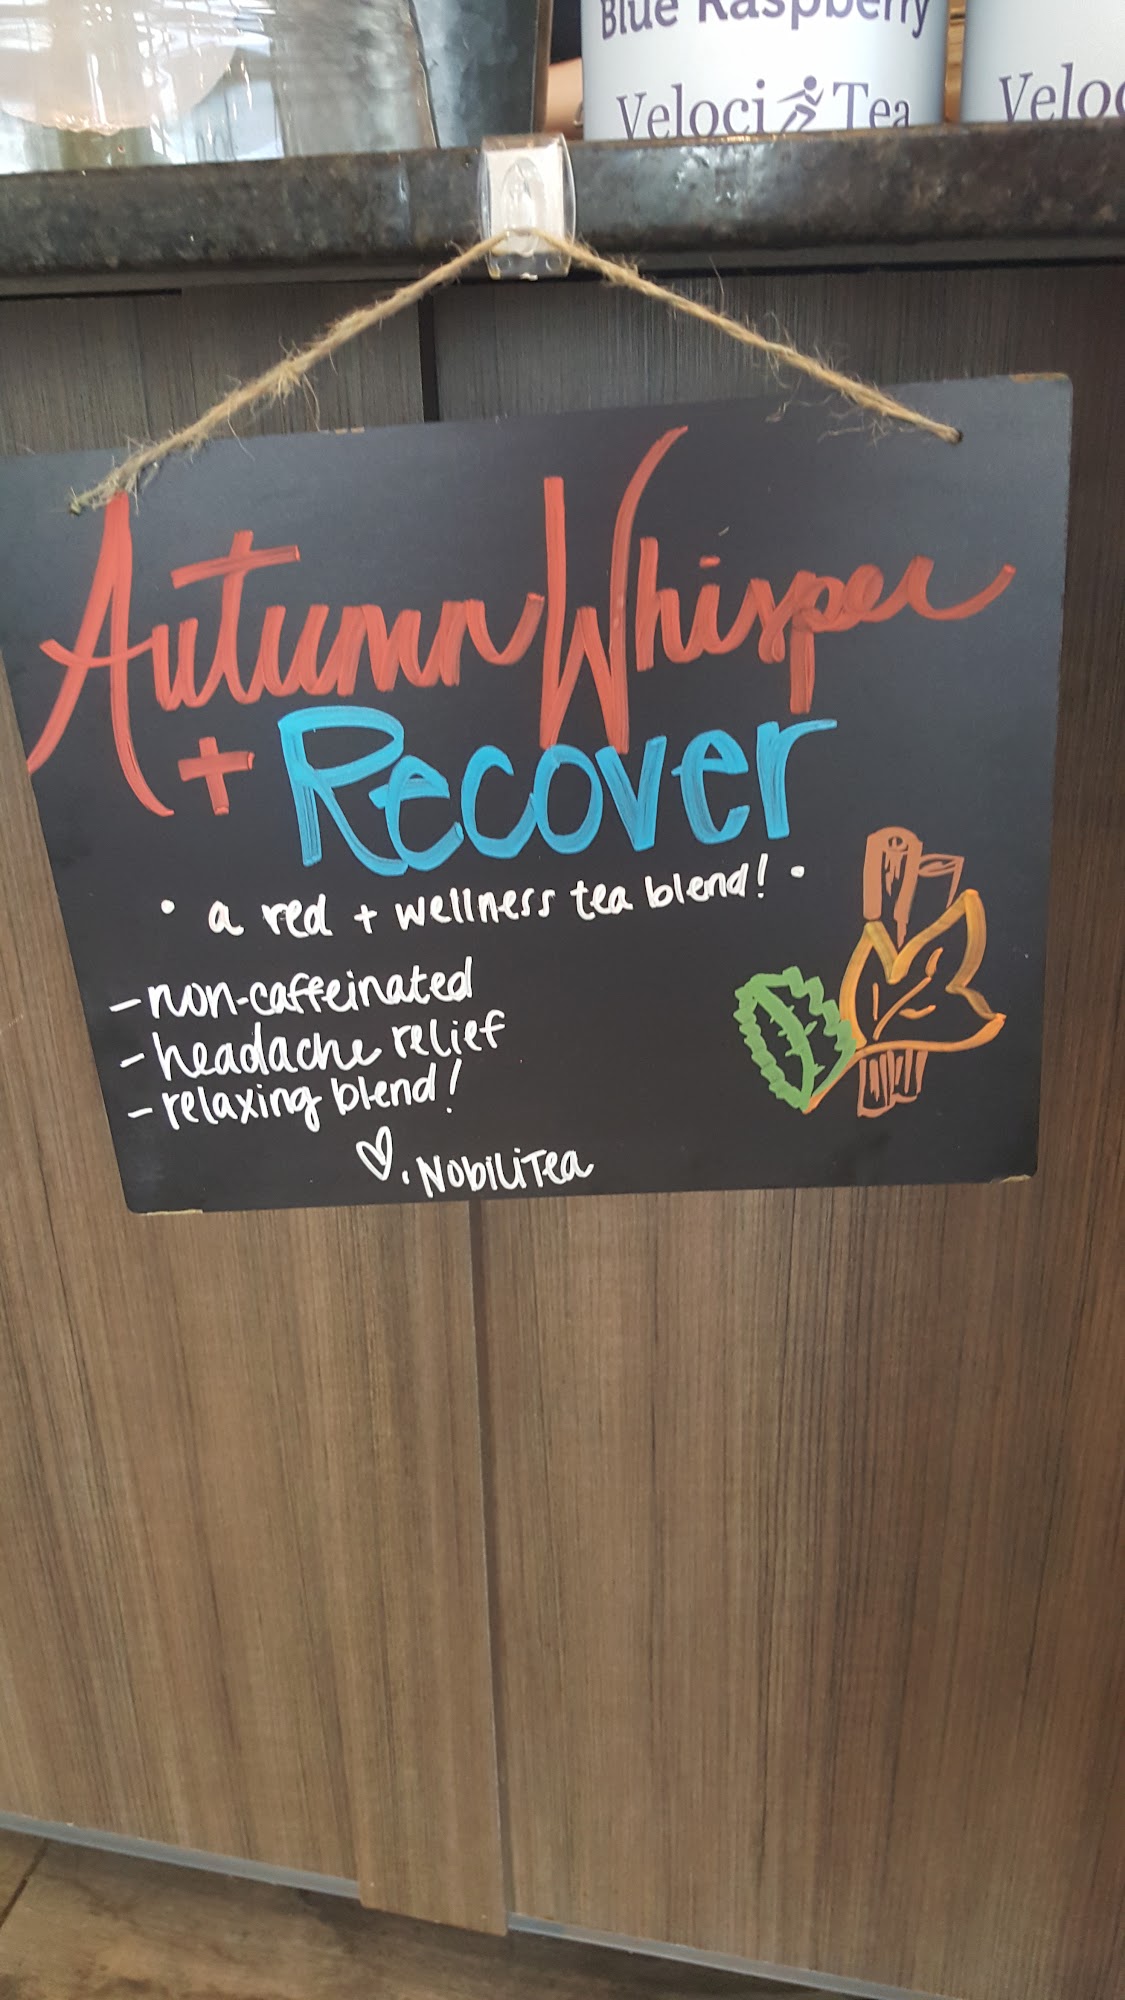 Blue Raspberry
Veloci Tea
Veloc
Autumn Whisper
+ Recover
• a red + wellness tea blend! •
- non-caffeinated
- headache relief
- relaxing blend!
♡, NobiliTea